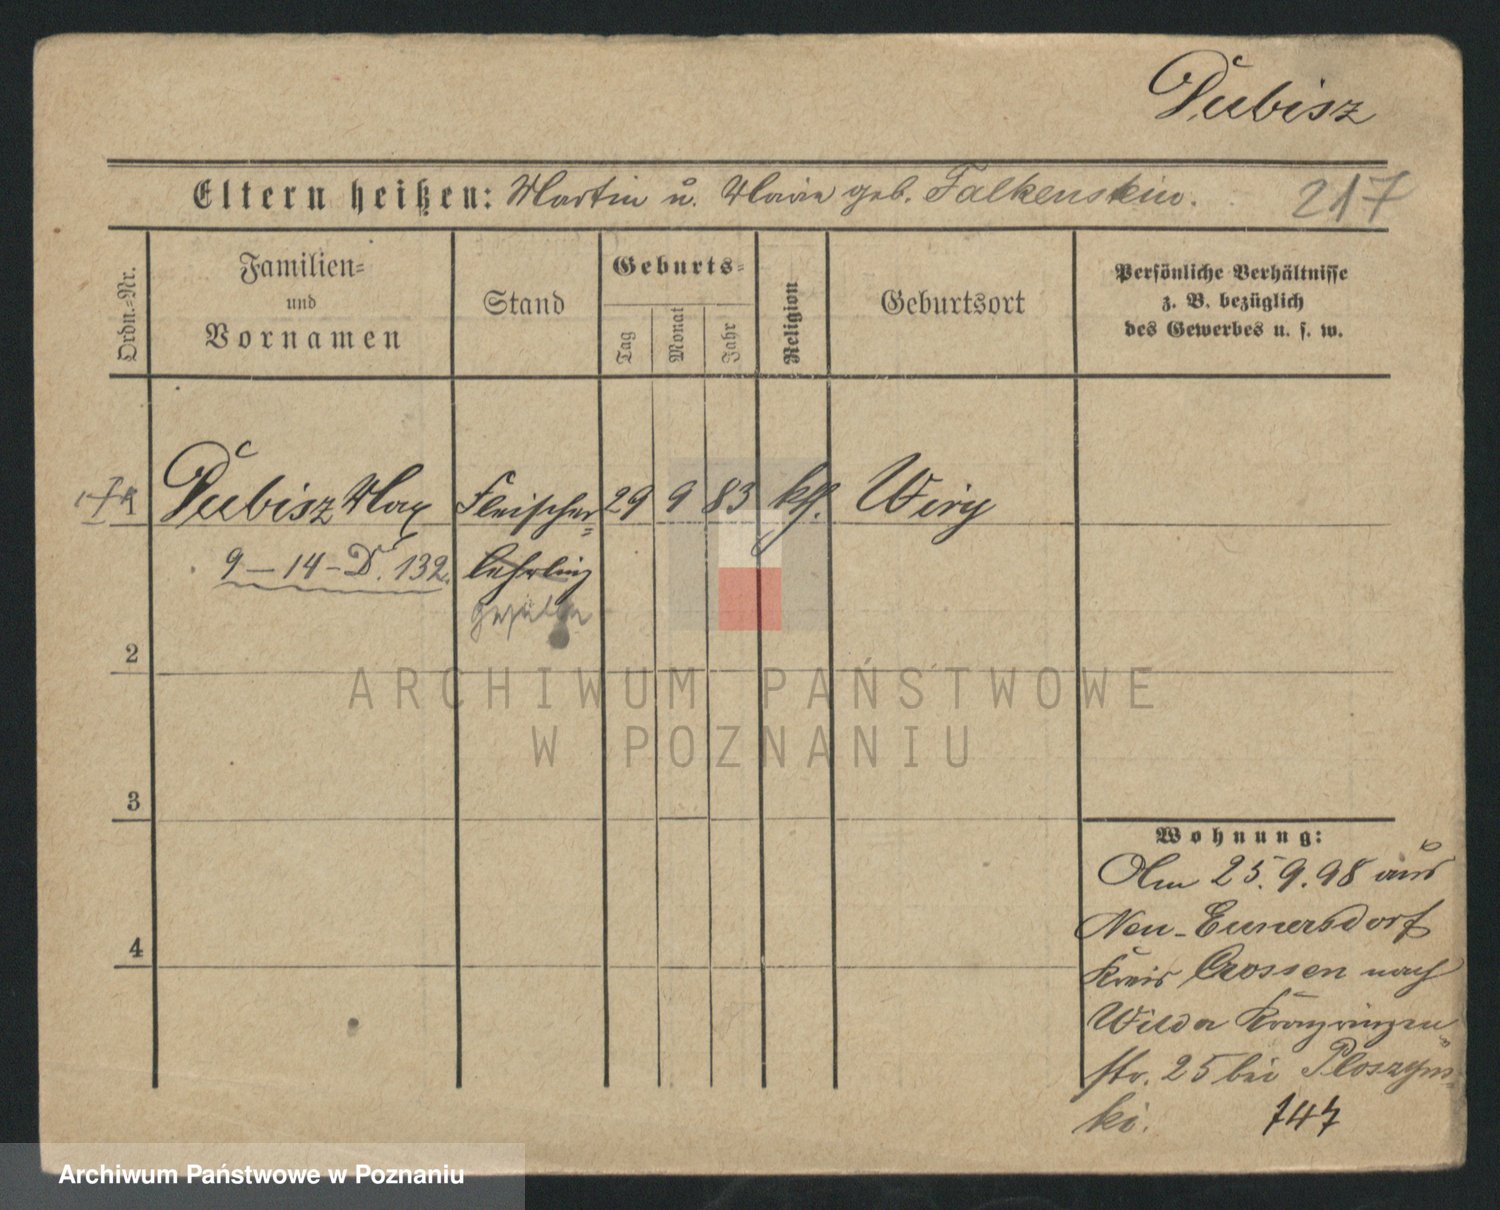 Dubisz
Eltern heißen: Martin u. Marie geb. Falkenstein. 217
Ordn.=Nr.
Familien=
und
Vornamen
Stand
Geburts=
Tag
Monat
Jahr
Religion
Geburtsort
Persönliche Verhältnisse
z. B. bezüglich
des Gewerbes u. s. w.
1 Dubisz Max Fleischer= 29 9 83 kth. Wiry
9-14-D. 132. lehrling
geselle
2
ARCHIWUM PAŃSTWOWE
W POZNANIU
3
Wohnung:
Am 25.9.98 aus
Neu-Eunersdorf
Kreis Crossen nach
Wilda Kronprinzen=
str. 25 bei Ploszyns=
4
ki. 747
Archiwum Państwowe w Poznaniu